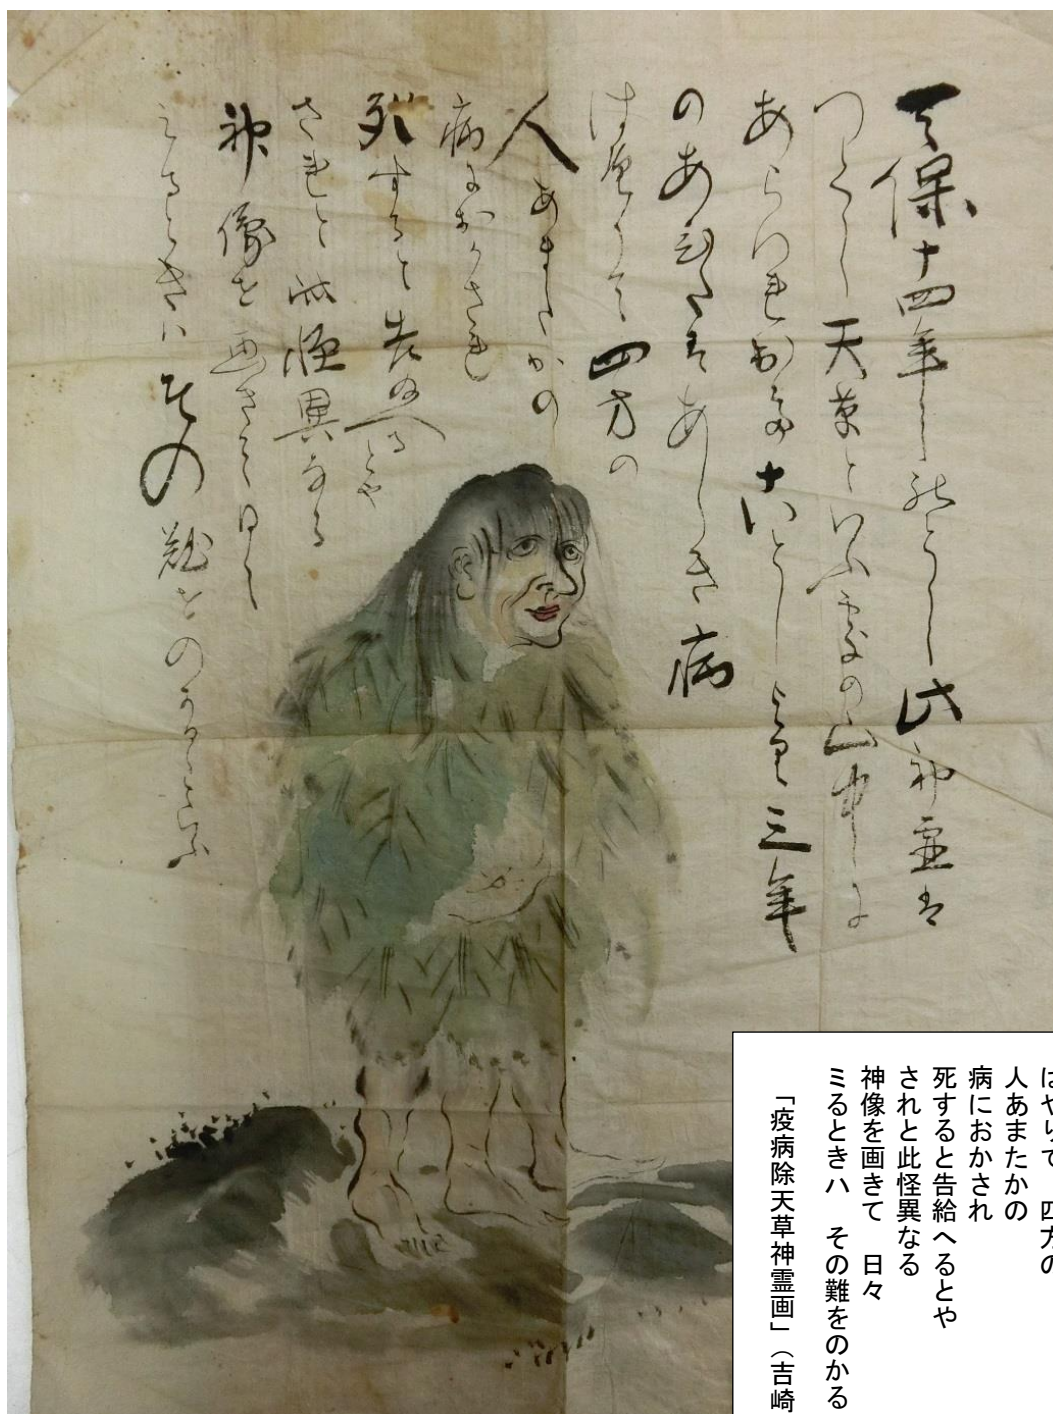 天保十四年 此神霊は
つくし天草といふ處の山中に
あらはれ としより三年
のあひたはあしき病
はやりて四方の
人あまたかの
病におかされ
死すると告給へるとや
されと此怪異なる
神像を画きて日々
ミるときハその難をのかるといふ
はやりて　四方の
人あまたかの
病におかされ
死すると告給へるとや
されと此怪異なる
神像を画きて　日々
ミるときハ　その難をのかる
「疫病除天草神霊画」（吉崎